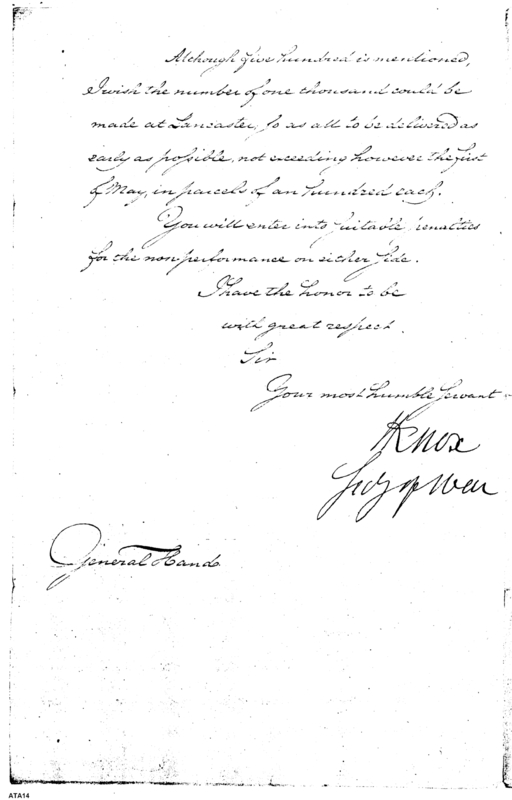 Although five hundred is mentioned,
I wish the number of one thousand could be
made at Lancaster, so as all to be delivered as
early as possible, not exceeding however the first
of May, in parcels of an hundred each.
You will enter into suitable penalties
for the non performance on either side.
I have the honor to be
with great respect.
Sir
Your most humble Servant
HKnox
Secy of War
General Hand
ATA14